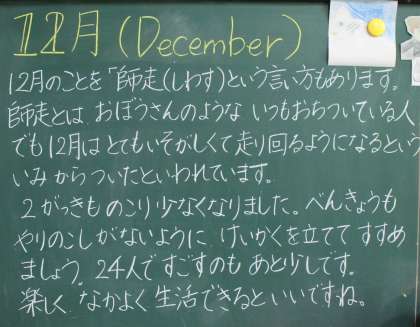 12月(December)
12月のことを「師走(しわす)という言い方もあります。
師走とは おぼうさんのような いつもおちついている人
でも12月は とてもいそがしくて走り回るようになるという
いみ からついたといわれています。
2がっきものこり少なくなりました。べんきょうも
やりのこしがないように けいかくを立てて すすめ
ましょう。24人ですごすのも あと少しです。
楽しく なかよく 生活できるといいですね。